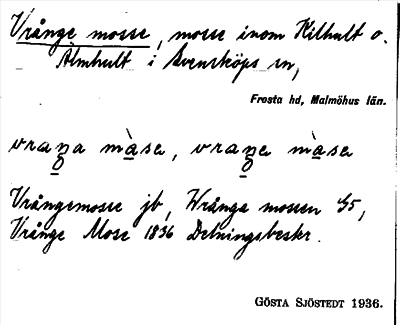 Vrånge mosse, mosse inom Kilhult o.
Älmhult i Svensköps sn,
Frosta hd, Malmöhus län.
vraŋa màsa, vraŋe màsa
Vrångemosse jb, Wrånga mossen 45,
Vrånge Mose 1836 Delningsbeskr.
GÖSTA SJÖSTEDT 1936.